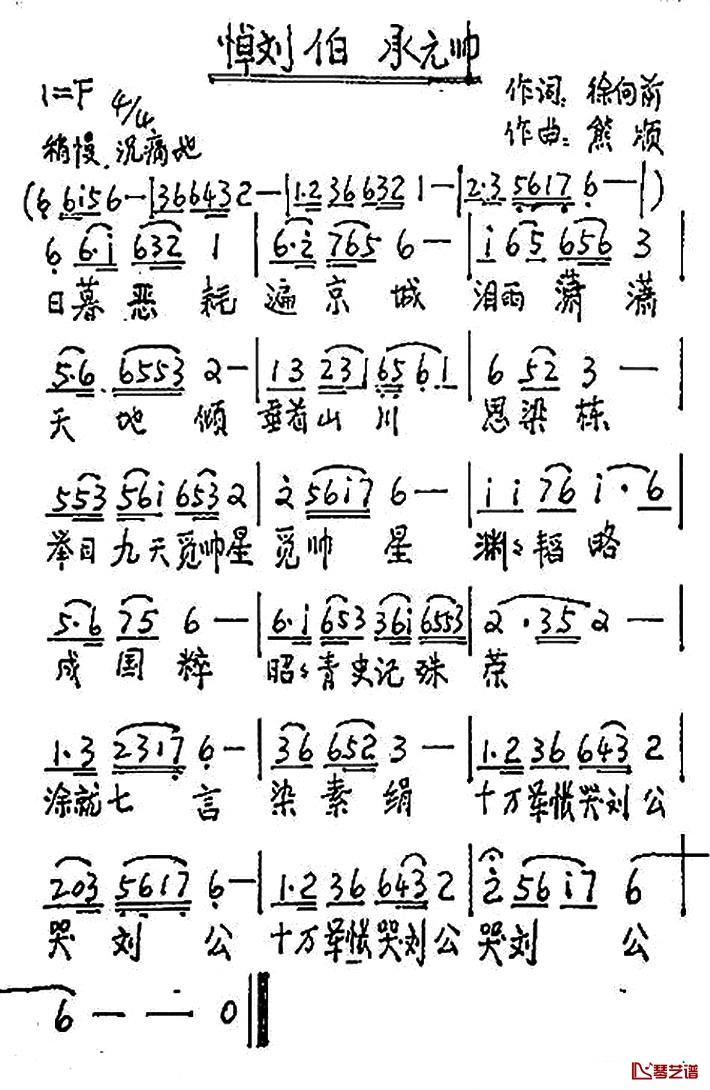 悼刘伯 承元帅
1=F 4/4 作词: 徐向前
稍慢、沉痛地 作曲: 熊 颂
(6 6i56-|366432-|1·236 6321-|2·3 5617 6-|)
6 6·i 632 1|6·i 765 6-|i 65 656 3|
日暮恶 耗 遍京城 泪雨潇 潇
5·6 6553 2-|13 231 65 6·1|6 52 3-|
天地倾 垂首山川 思梁栋
553 56i 653 2|2 56i7 6-|i i 76 i·6|
举目九天觅帅星 觅帅星 渊々韬略
5·6 75 6-|6·i 653 36i 6553|2·35 2-|
成国粹 昭々青史记殊荣
1·3 2317 6-|36 652 3-|1·2 36 643 2|
涂就七言 染素绢 十万军帐哭刘公
203 5617 6-|1·2 36 643 2|2 56i7 6
哭刘公 十万军帐哭刘公 哭刘 公
6 - - 0
琴艺谱